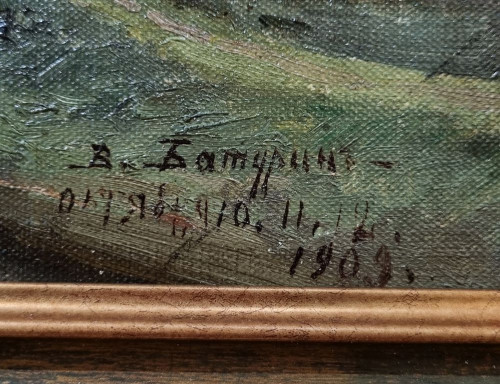 В. Батуринъ –
октябрь, 10. 11. 12.
1909.